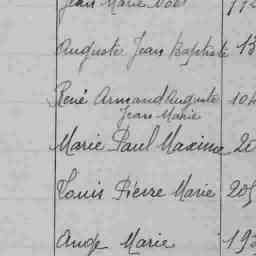 Jean Marie Noël
Auguste Jean Baptiste 13
René Armand Auguste 104
Jean Marie
Marie Paul Maxime 20
Louis Pierre Marie 205
Ange Marie 193